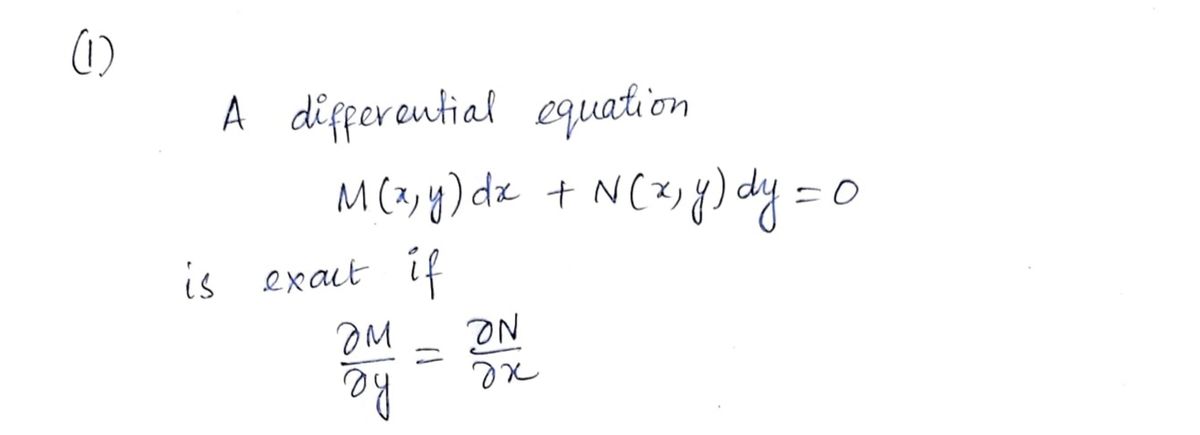 (1)
A differential equation
M(x,y)dx + N(x,y)dy = 0
is exact if
∂M/∂y = ∂N/∂x